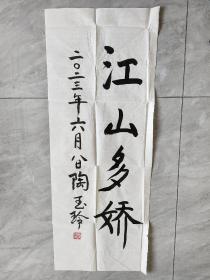 江山多娇
二〇二三年六月八日陶玉玲